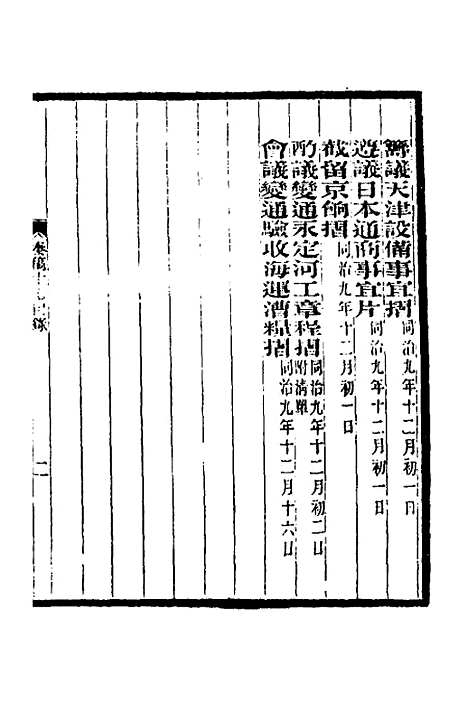 籌議天津設備事宜摺同治九年十二月初一日
遵議日本通商事宜片同治九年十二月初一日
截留京餉摺同治九年十二月初一日
酌議變通永定河工章程摺附清單同治九年十二月初二日
會議變通驗收海運漕糧摺同治九年十二月十六日
奏稿十九目錄
二